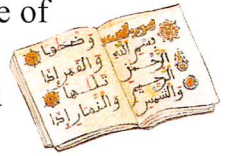 e of
بسم الله
الرحمن
الرحيم
والشمس
وضحاها
والقمر إذا
تلـها
والنهار إذا